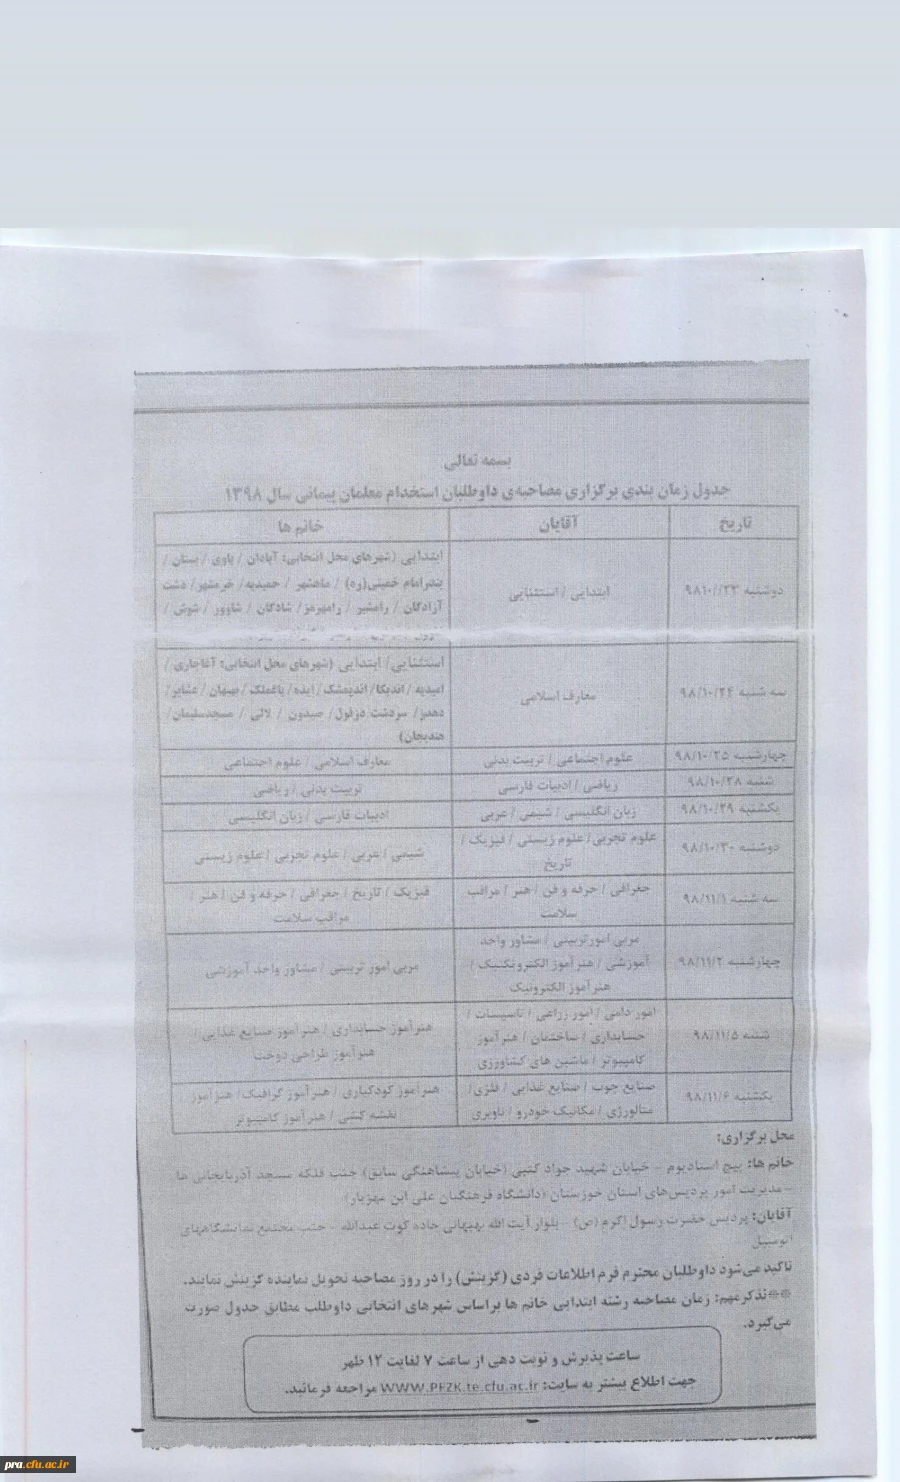 بسمه تعالی
جدول زمان بندی برگزاری مصاحبه‌ی داوطلبان استخدام معلمان پیمانی سال ۱۳۹۸
تاریخ آقایان خانم ها
دوشنبه ۹۸۱۰//۲۳ ابتدایی / استثنایی ابتدایی (شهرهای محل انتخابی: آبادان / باوی / بستان /
بندرامام خمینی(ره) / ماهشهر / حمیدیه/ خرمشهر/ دشت
آزادگان / رامشیر / رامهرمز/ شادگان / شاوور / شوش /
سه شنبه ۹۸/۱۰/۲۴ معارف اسلامی استثنایی/ ابتدایی (شهرهای محل انتخابی: آغاجاری /
امیدیه / اندیکا/ اندیمشک / ایذه / باغملک / بهبهان / هفتگل /
دهدز/ سردشت دزفول/ صیدون / لالی / مسجدسلیمان/
هندیجان)
چهارشنبه ۹۸/۱۰/۲۵ علوم اجتماعی / تربیت بدنی معارف اسلامی / علوم اجتماعی
شنبه ۹۸/۱۰/۲۸ ریاضی / ادبیات فارسی تربیت بدنی / ریاضی
یکشنبه ۹۸/۱۰/۲۹ زبان انگلیسی / شیمی / عربی ادبیات فارسی / زبان انگلیسی
دوشنبه ۹۸/۱۰/۳۰ علوم تجربی / علوم زیستی / فیزیک /
تاریخ شیمی / عربی / علوم تجربی / علوم زیستی
سه شنبه ۹۸/۱۱/۱ جغرافی / حرفه و فن / هنر / مراقب
سلامت فیزیک / تاریخ / جغرافی / حرفه و فن / هنر /
مراقب سلامت
چهارشنبه ۹۸/۱۱/۲ مربی امورتربیتی / مشاور واحد
آموزشی / هنرآموز الکتروتکنیک /
هنرآموز الکترونیک مربی امور تربیتی / مشاور واحد آموزشی
شنبه ۹۸/۱۱/۵ امور دامی / امور زراعی / تاسیسات /
حسابداری / ساختمان / هنرآموز
کامپیوتر / ماشین های کشاورزی هنرآموز حسابداری / هنرآموز صنایع غذایی /
هنرآموز طراحی دوخت
یکشنبه ۹۸/۱۱/۶ صنایع چوب / صنایع غذایی / فلزی/
متالورژی / مکانیک خودرو / ناوبری هنرآموز کودکیاری / هنرآموز گرافیک / هنرآموز
نقشه کشی / هنرآموز کامپیوتر
محل برگزاری:
خانم ها: پیچ استادیوم – خیابان شهید جواد کتبی (خیابان پیشاهنگی سابق) جنب فلکه مسجد آذربایجانی ها
–مدیریت امور پردیس‌های استان خوزستان (دانشگاه فرهنگیان علی ابن مهزیار)
آقایان: پردیس حضرت رسول اکرم (ص) – بلوار آیت الله بهبهانی جاده کوت عبدالله – جنب مجتمع نمایشگاههای
اتومبیل
تاکید می‌شود داوطلبان محترم فرم اطلاعات فردی (گزینش) را در روز مصاحبه تحویل نماینده گزینش نمایند.
**تذکر مهم: زمان مصاحبه رشته ابتدایی خانم ها براساس شهرهای انتخابی داوطلب مطابق جدول صورت
می‌گیرد.
ساعت پذیرش و نوبت دهی از ساعت ۷ لغایت ۱۲ ظهر
جهت اطلاع بیشتر به سایت: WWW.PFZK.te.cfu.ac.ir مراجعه فرمائید.
pra.cfu.ac.ir